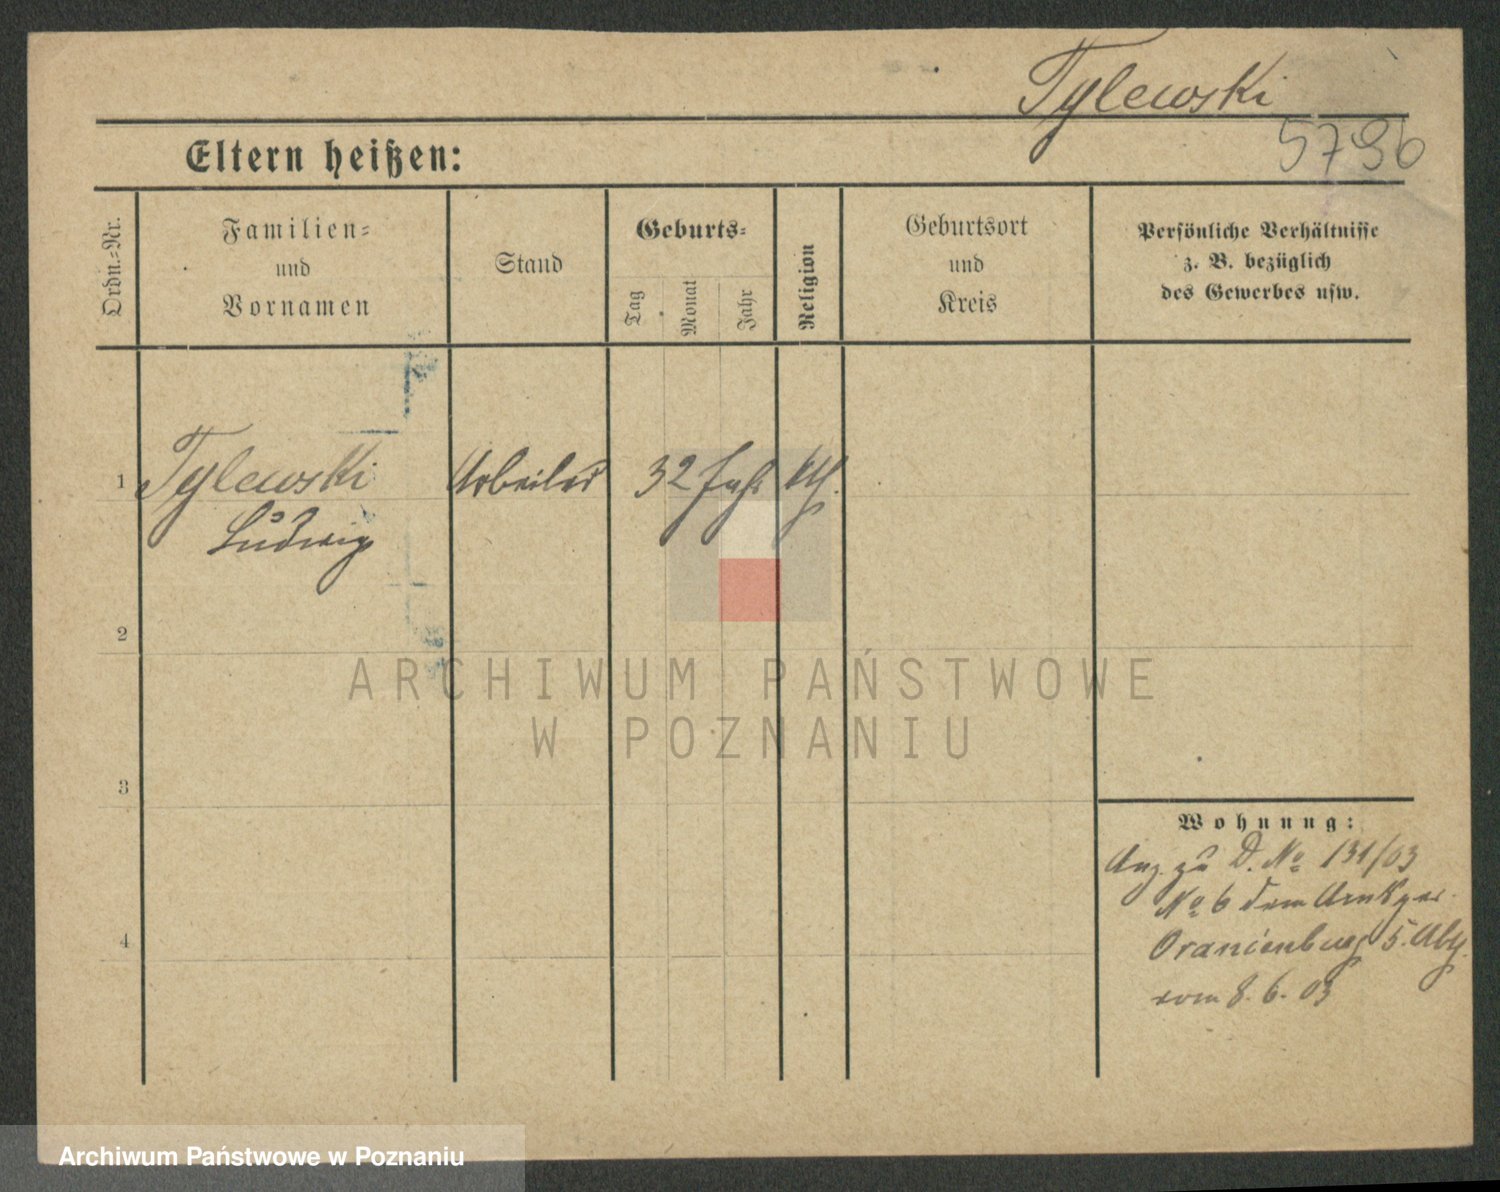 Tylewski
5796
Eltern heißen:
Ordn.-Nr.
Familien-
und
Vornamen
Stand
Geburts-
Tag
Monat
Jahr
Religion
Geburtsort
und
Kreis
Persönliche Verhältnisse
z. B. bezüglich
des Gewerbes usw.
1 Tylewski Arbeiter 32 Jahr kth.
Ludwig
2
ARCHIWUM PAŃSTWOWE
W POZNANIU
3
Wohnung:
Anz. zu D. No 131/03
No 6 dem
Oranienburg 5. Abth.
vom 8. 6. 03
4
Archiwum Państwowe w Poznaniu